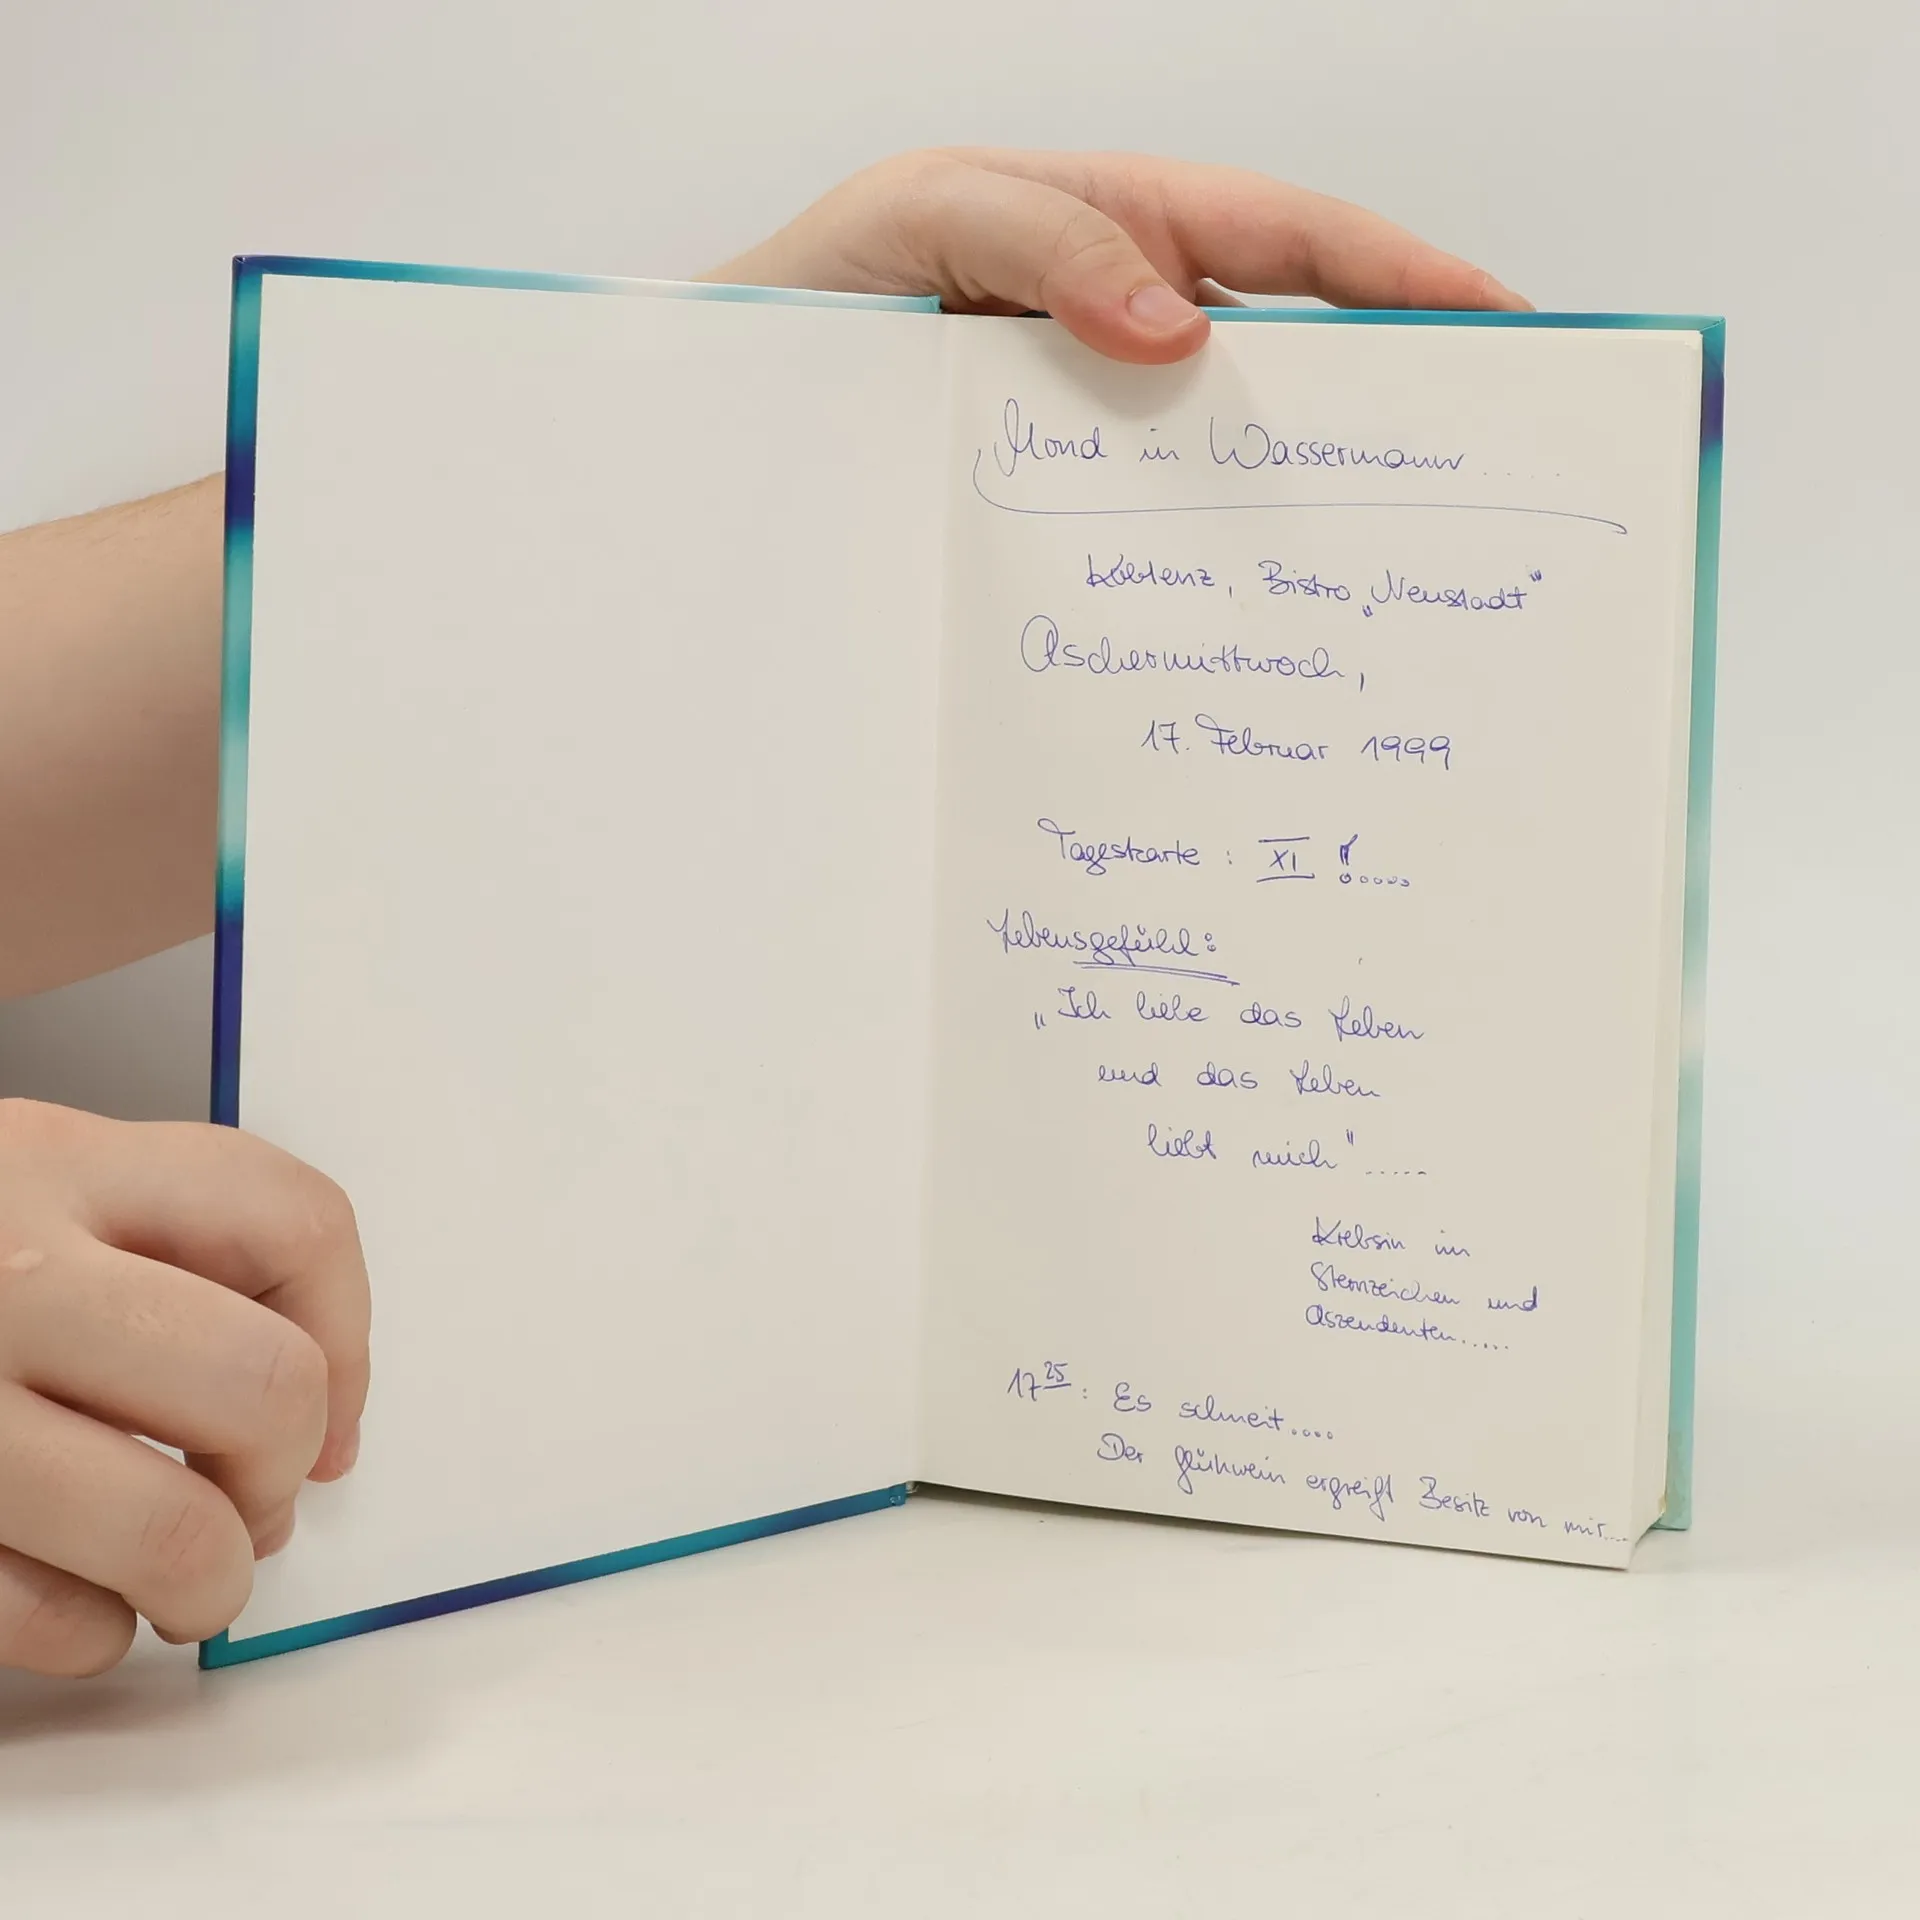 Mond in Wassermann.....
Koblenz, Bistro „Neustadt"
Aschermittwoch,
17. Februar 1999
Tageskarte : XI !.....
Lebensgefühl:
„Ich liebe das Leben
und das Leben
liebt mich".....
Krebsin im
Sternzeichen und
Aszendenten.....
17 25 : Es schneit....
Der Glühwein ergreift Besitz von mir....